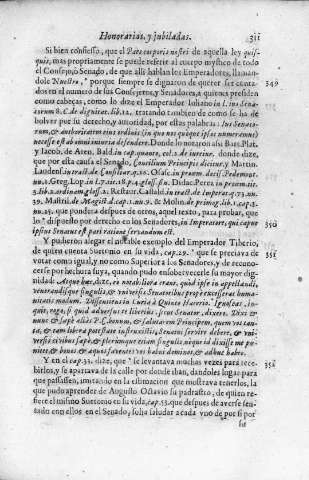 Honorarias, y jubiladas. 311
Si bien confiesso, que el Pars corporis nostri de aquella ley quis-
quis, mas propriamente se puede referir al cuerpo mystico de todo
el Consejo, ò Senado, de que alli hablan los Emperadores, llaman-
dole Nuestro, porque siempre se dignaron de querer ser conta- 349
dos en el numero de sus Consejeros, y Senadores, a quienes presiden
como cabeças, como lo dize el Emperador Iuliano in l. ius Sena-
torum 8. C. de dignitat. lib. 12. tratando tambien de como se ha de
bolver por su derecho, y autoridad, por estas palabras: Ius Senato-
rum, & authoritatem eius ordinis (in quo nos quoque ipsos numeramus)
necesse est ab omni iniuria defendere. Donde lo notaron assi Bart. Plat.
y Iacob. de Aren. Bald. in cap. quanto, col. 2. de iureiur. donde dize,
que por esta causa el Senado, Consilium Principis dicitur, Martin.
Laudens. in tract. de Consiliar. q. 10. Osasc. in proœm. decis. Pedemont.
nu. 2. Greg. Lop. in l. 7. tit. 18. p. 4. Didac. Perez in proœm. tit.
3. lib. 2. ordinam. Restaur. Castald. in tract. de Imperat. q. 73. nu.
39. Mastril. de Magist. d. cap. 1. nu. 9. & Molin. de primog. lib. 1. cap. 2.
nu. 25. que pondera despues de otros, aquel texto, para probar, que
lo dispuesto por derecho en los Senadores, in Imperatore, qui caput
ipsius Senatus est pari ratione servandum est. 350
Y pudieron alegar el notable exemplo del Emperador Tiberio,
de quien cuenta Suetonio en su vida, cap. 29. que se preciava de 351
votar como igual, y no como Superior a los Senadores, y de recono-
cerse por hechura suya, quando pudo ensobervecerle su mayor dig-
nidad: Atque haec, dize, eo notabiliora erant, quod ipse in appellandis,
venerandisque singulis, & universis Senatoribus prope excesserat huma-
nitatis modum. Dissentiens in Curia à Quinto Haterio. Ignoscas, in-
quit, rogo, si quid adversus te liberius, sicut Senator, dixero. Dixi &
nunc & saepè aliàs P. C. bonum, & salutarem Principem, quem vos tan-
ta, & tam libera potestate instruxistis, Senatui servire debere, & uni-
versis civibus saepè, & plerumque etiam singulis, neque id dixisse me pœ-
nitet, & bonos, & aequos, & faventes vos habui dominos, & adhuc habeo.
Y en el cap. 31. dize, que se levantava muchas vezes para rece- 352
birlos, y se apartava de la calle por donde iban, dandoles lugar para
que passassen, imitando en la estimacion que mostrava tenerlos, la
que pudo aprender de Augusto Octavio su padrastro, de quien re-
fiere el mismo Suetonio en su vida, cap. 53. que despues de averse sen-
tado con ellos en el Senado, solia saludar a cada uno de por si por
su